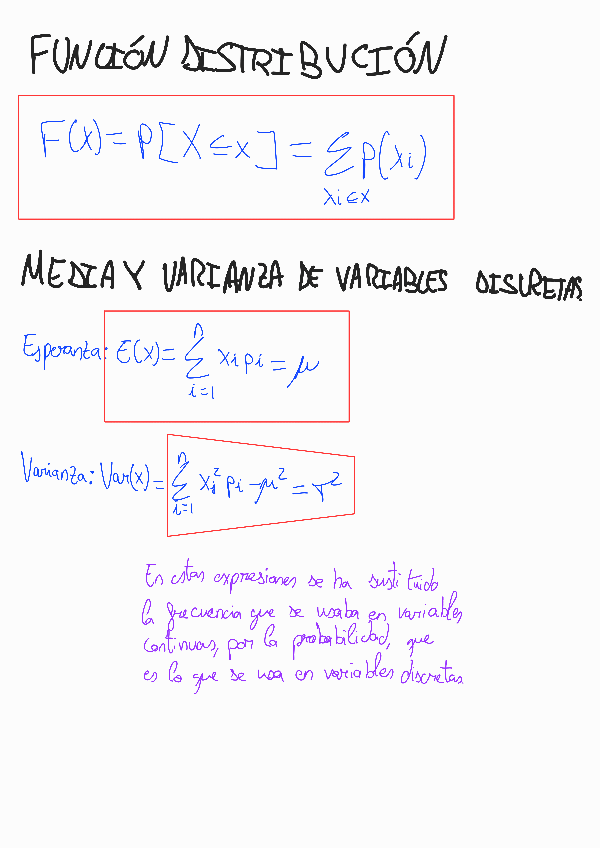 FUNCIÓN DISTRIBUCIÓN
F(x) = P[X ≤ x] = ∑ p(xi)
xi ≤ x
MEDIA Y VARIANZA DE VARIABLES DISCRETAS
Esperanza: E(x) = ∑ᵢ₌₁ⁿ xi pi = μ
Varianza: Var(x) = ∑ᵢ₌₁ⁿ xi² pi - μ² = σ²
En estas expresiones se ha sustituido
la frecuencia que se usaba en variables
continuas, por la probabilidad, que
es lo que se usa en variables discretas